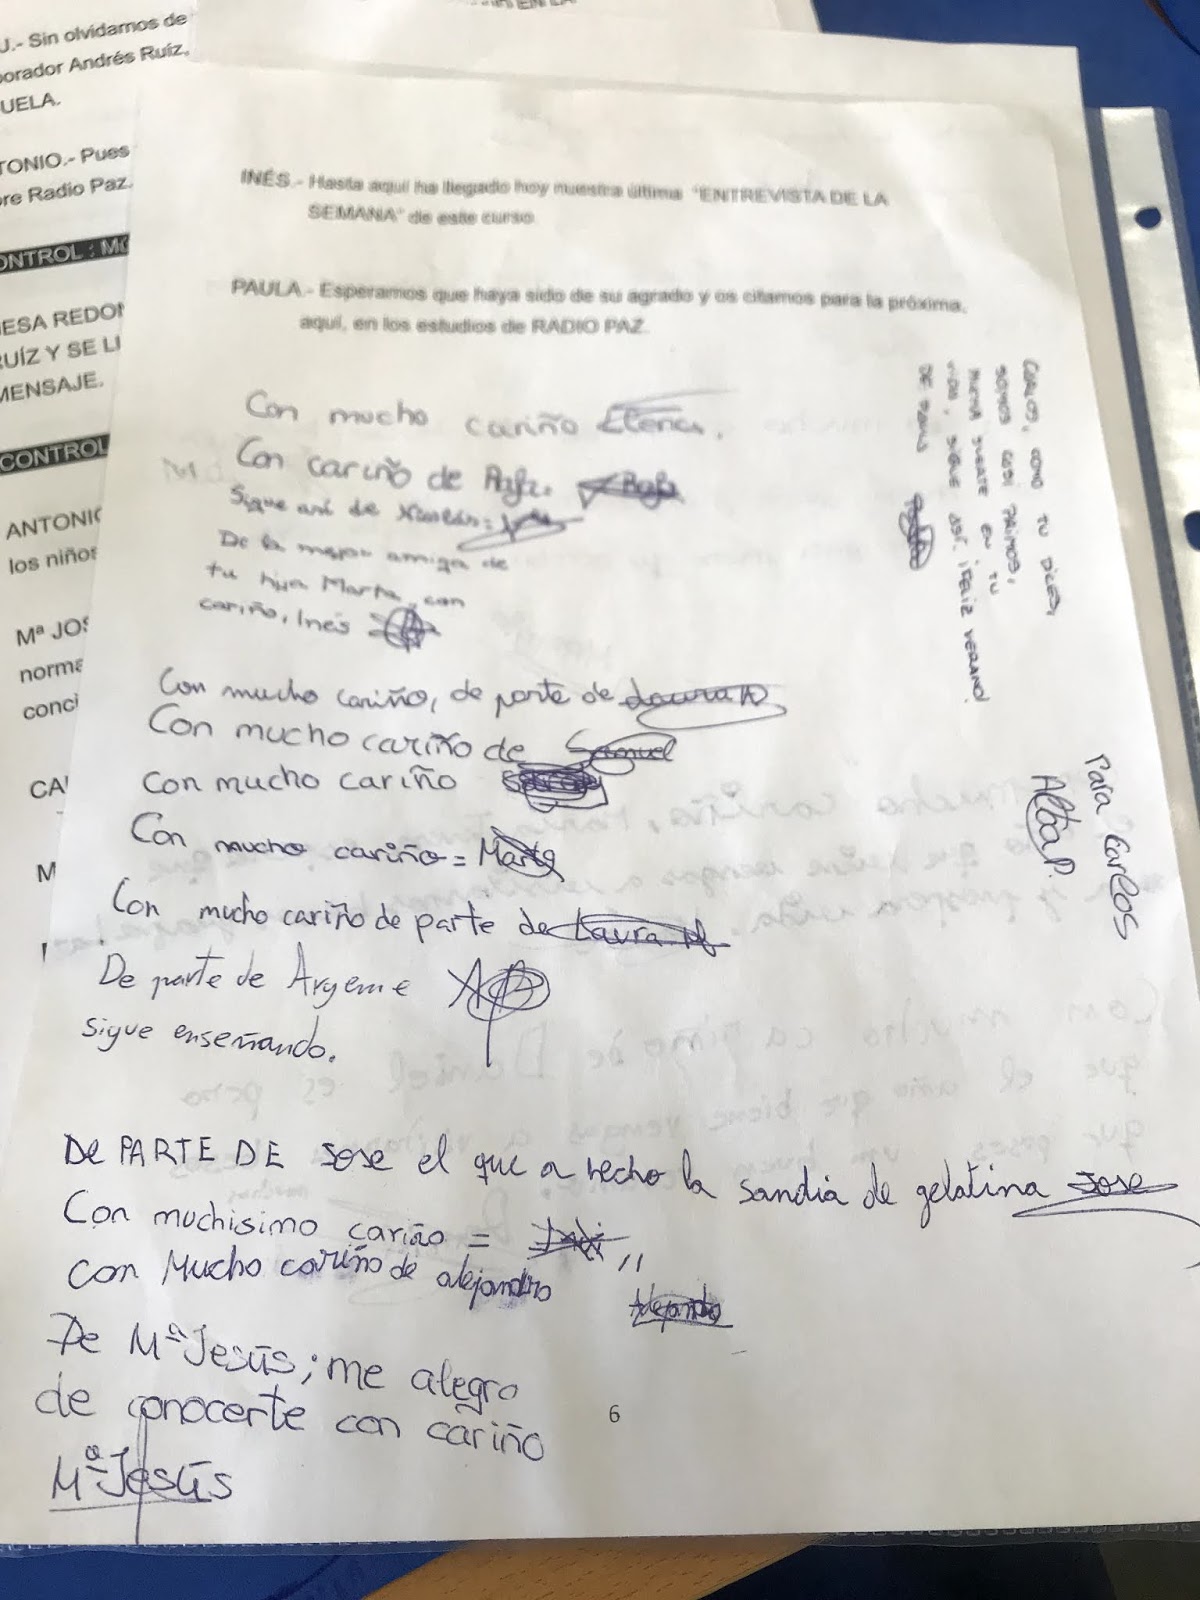 U.- Sin olvidarnos de
orador Andrés Ruíz,
UELA.
TONIO.- Pues
re Radio Paz.
ONTROL : MÚ
ESA REDON
RUÍZ Y SE LI
MENSAJE.
CONTROL
ANTONIO
los niños
Mª JOS
norma
conci
CA
M
INÉS.- Hasta aquí ha llegado hoy nuestra última "ENTREVISTA DE LA
SEMANA" de este curso.
PAULA.- Esperamos que haya sido de su agrado y os citamos para la próxima,
aquí, en los estudios de RADIO PAZ.
Con mucho cariño Elena.
Con cariño de Rafa. Rafa
Sigue así de Nicolás:
De la mejor amiga de
tu hija Marta, con
cariño, Inés
Con mucho cariño, de parte de Laura
Con mucho cariño de Samuel
Con mucho cariño
Con mucho cariño = Marta
Con mucho cariño de parte de Laura M
De parte de Argeme
sigue enseñando.
De PARTE DE Jose el que a hecho la sandia de gelatina Jose
Con muchisimo cariño =
con Mucho cariño de alejandro
Alejandro
De Mª Jesús; me alegro
de conocerte con cariño
Mª Jesús
6
CARLOS, COMO TÚ DICES,
SOMOS CASI PRIMOS,
MUCHA SUERTE EN TU
VIDA, SIGUE ASÍ. ¡FELIZ VERANO!
DE
Para Carlos
Alba P.